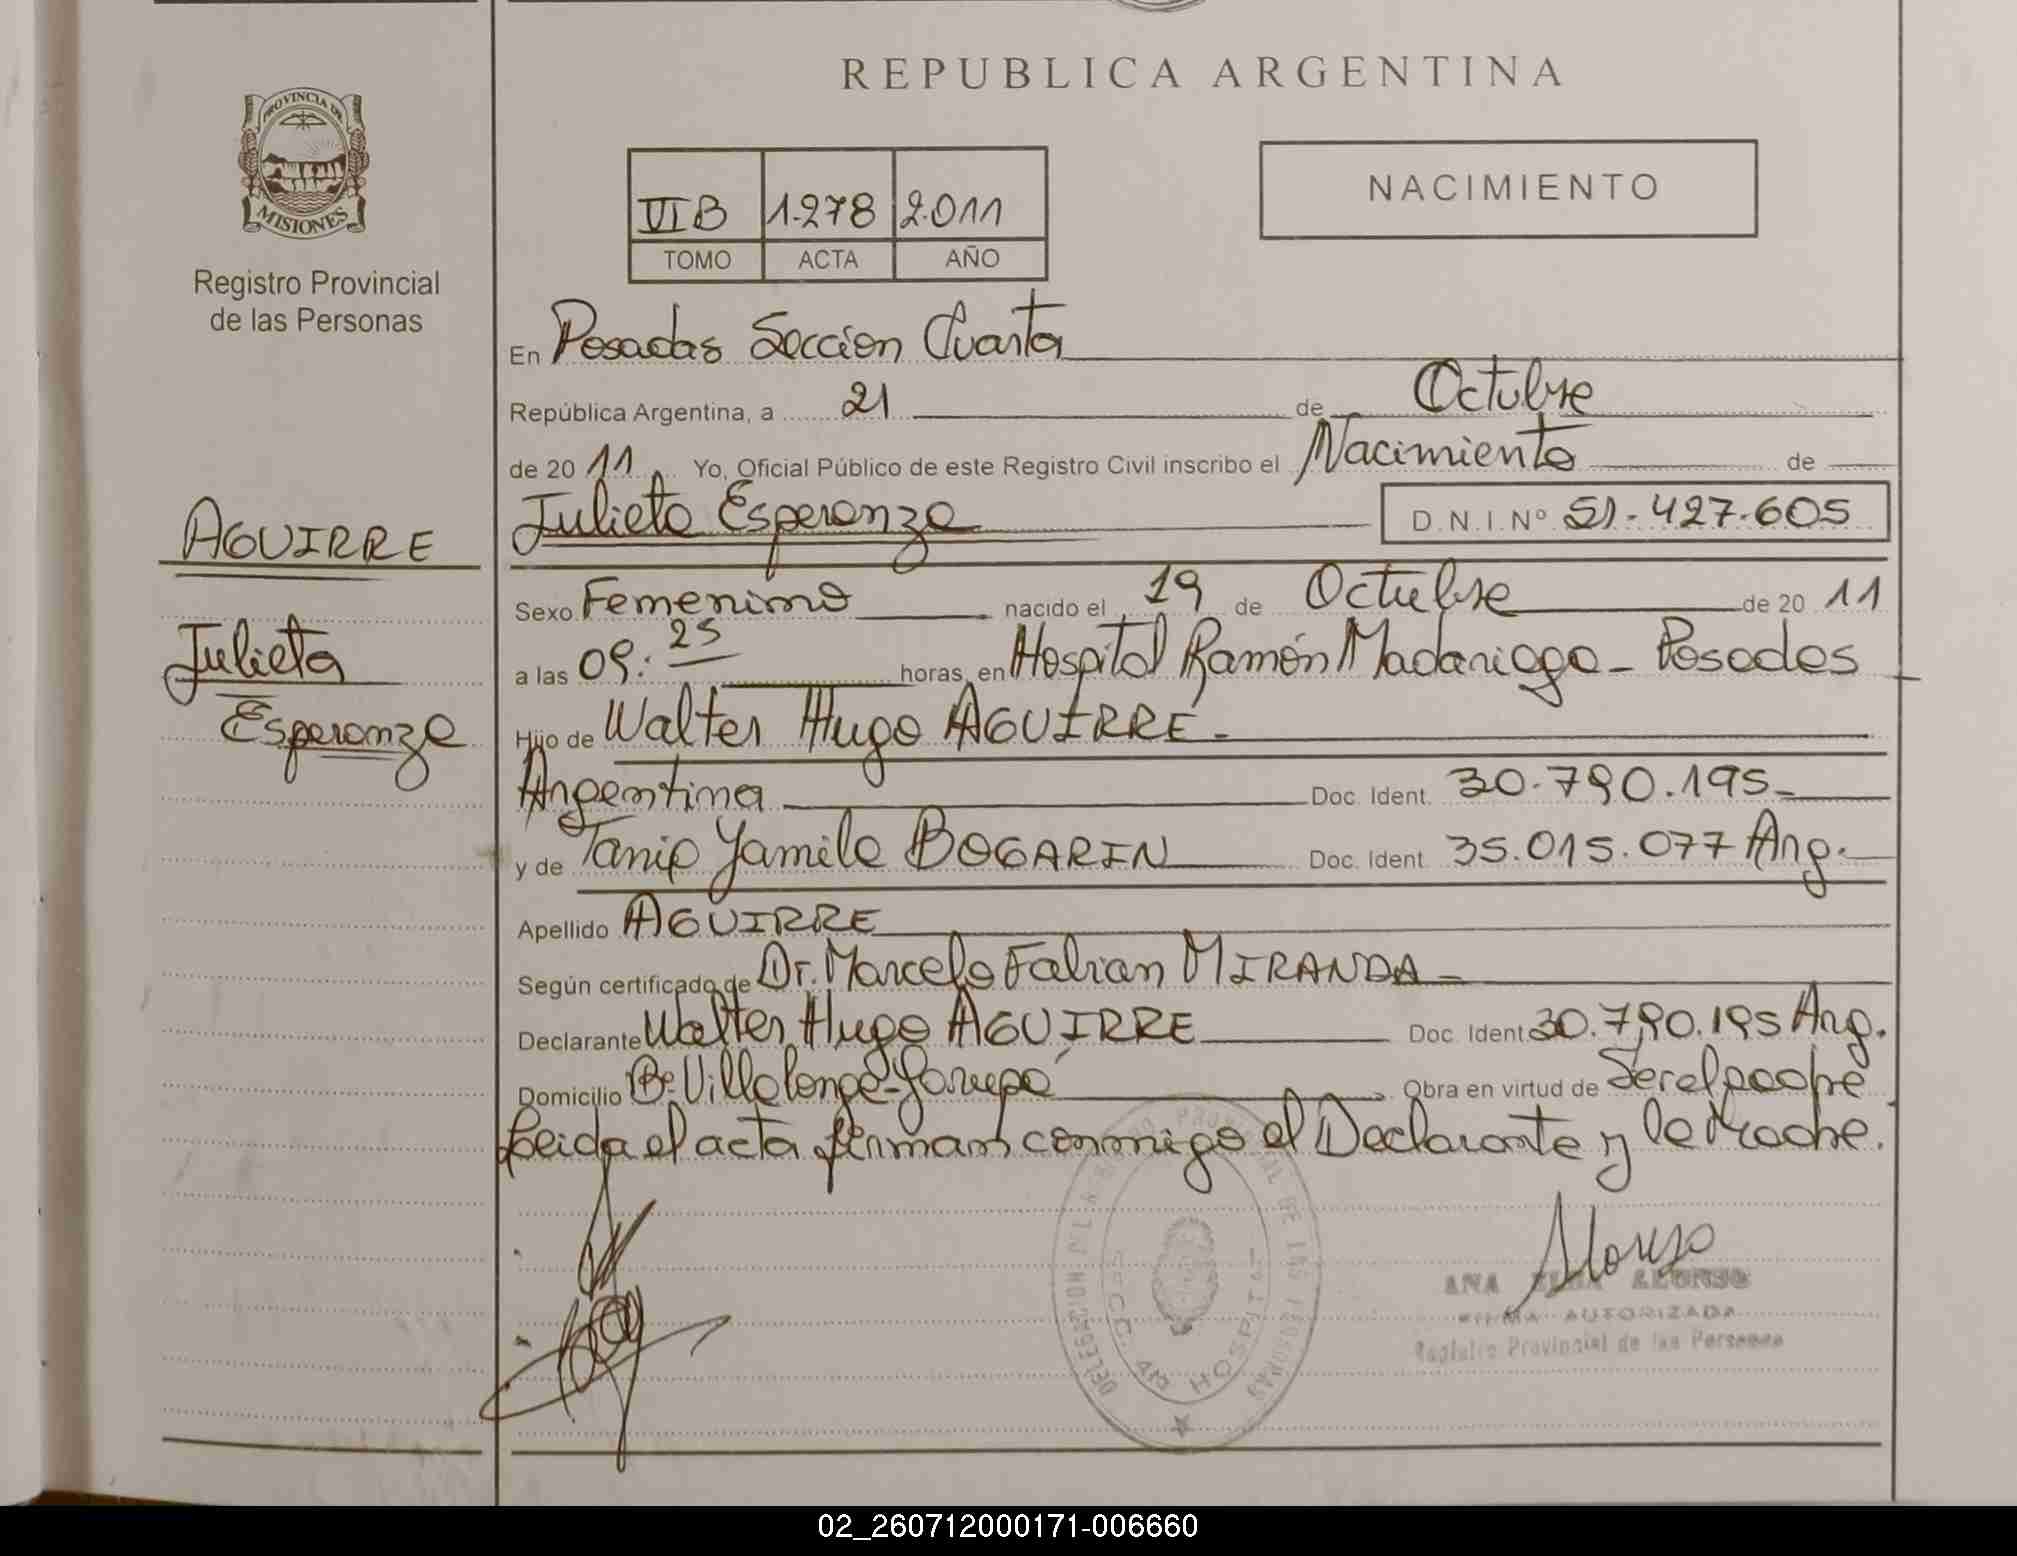 REPUBLICA ARGENTINA
PROVINCIA DE
MISIONES
Registro Provincial
de las Personas
NACIMIENTO
VI B 1.278 2.011
TOMO ACTA AÑO
En Posadas Seccion Cuarta
República Argentina, a 21 de Octubre
de 20 11 Yo, Oficial Público de este Registro Civil inscribo el Nacimiento de
AGUIRRE
Julieta
Esperanza
Julieta Esperanza D.N.I. Nº 51.427.605
Sexo Femenino nacido el 19 de Octubre de 20 11
a las 09:25 horas, en Hospital Ramón Madariaga - Posadas
Hijo de Walter Hugo AGUIRRE.
Argentina Doc. Ident. 30.790.195
y de Tania Yamila BOGARIN Doc. Ident. 35.015.077 Arg.
Apellido AGUIRRE
Según certificado de Dr. Marcelo Fabian MIRANDA
Declarante Walter Hugo AGUIRRE Doc. Ident. 30.790.195 Arg.
Domicilio Bº Villalonga - Garupá Obra en virtud de Ser el padre
Leida el acta firman conmigo el Declarante y la Madre.
DELEGACION DEL REGISTRO PROVINCIAL DE LAS PERSONAS
SECC. 4ta HOSPITAL
Alonso
ANA ALONSO
FIRMA AUTORIZADA
Registro Provincial de las Personas
02_260712000171-006660